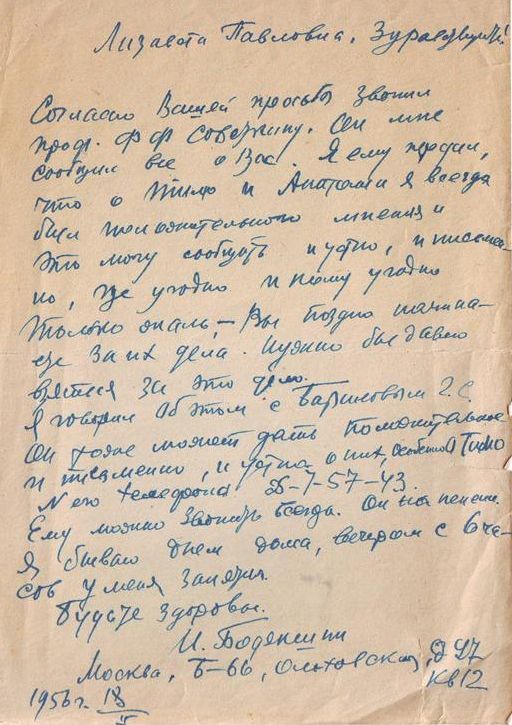 Лизавета Павловна, Здравствуйте!
Согласно Вашей просьбы звонил
проф. Ф Ф Он мне
сообщил все о Вас. Я ему передал,
что о Тилю и Анатолии я всегда
был положительного мнения и
это могу сообщить и устно, и письмен-
но, где угодно и кому угодно
Только жаль, – Вы поздно начина-
ете за их дела. Нужно бы давно
взяться за это дело.
Я говорил об этом с Бариновым
Он тоже может дать положительное
и писменно, и устно о них, особенно о
N его телефона Б-7-57-43.
Ему можно звонить всегда. Он на пенсии.
Я бываю днем дома, вечером с 6 ча-
сов у меня занятия.
Будьте здоровы.
И. Боденштин
Москва, Б-66, Ольховская, д 97
кв 12
1956 г. 18